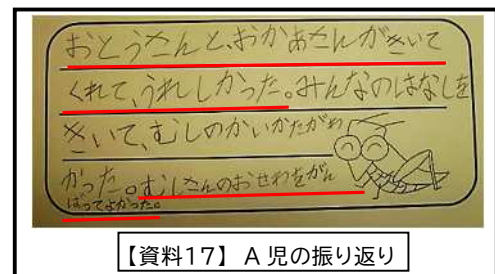 おとうさんと、おかあさんがきいて
くれて、うれしかった。みんなのはなしを
きいて、むしのかいかたがわ
かった。むしさんのおせわをがん
ばってよかった。
【資料17】 A 児の振り返り